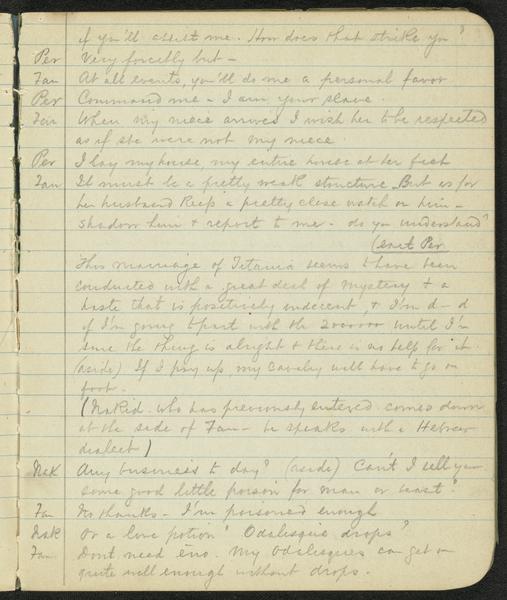 if you'll assist me. How does that strike you?
Per Very forcibly but –
Fan At all events, you'll do me a personal favor
Per Command me – I am your slave.
Fan When my niece arrives I wish her to be respected
as if she were not my niece.
Per I lay my house, my entire house at her feet
Fan It must be a pretty weak structure. But as for
her husband keep a pretty close watch on him –
shadow him & report to me – do you understand?
(exit Per
This marriage of Titania seems to have been
conducted with a great deal of mystery & a
haste that is positively indecent, & I'm d–d
if I'm going to part with the 2000000 until I'm
sure the thing is alright & there is no help for it.
(aside) If I pay up my cavalry will have to go on
foot –
(Nakid – who has previously entered comes down
at the side of Fan – he speaks with a Hebrew
dialect)
Nak Any business to day? (aside) Can't I sell you
some good little poison for man or beast?
Fan No thanks – I'm poisoned enough
Nak Or a love potion? Odalisque drops?
Fan Dont need em. My Odalisques can get on
quite well enough without drops.